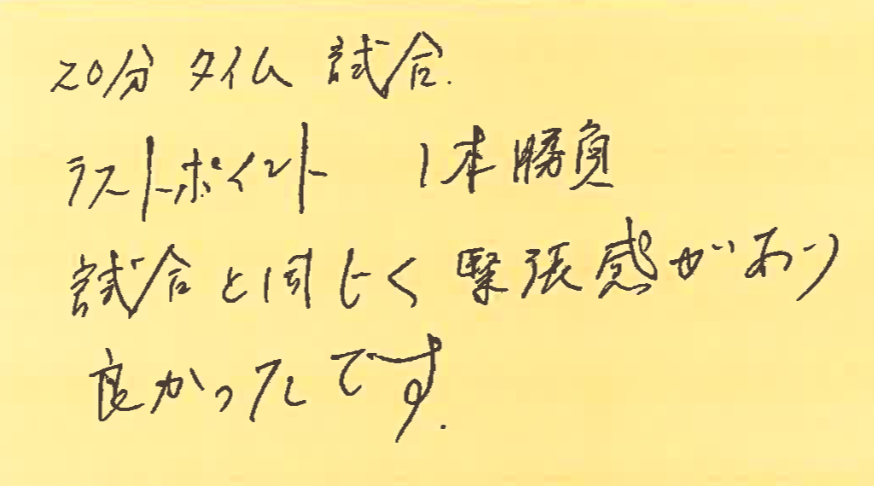 20分 タイム 試合.
ラストポイント 1本勝負
試合と同じく 緊張感があり
良かったです.